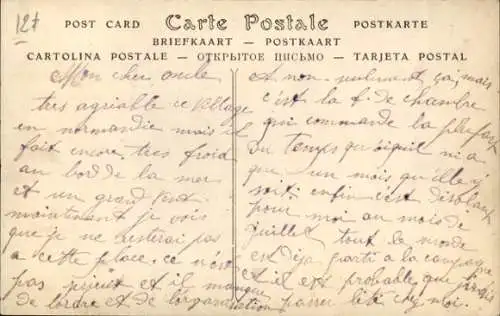 12f
POST CARD Carte Postale POSTKARTE
BRIEFKAART — POSTKAART
CARTOLINA POSTALE — ОТКРЫТОЕ ПИСЬМО — TARJETA POSTAL
Mon cher oncle
tres agriable ce village
en normandie mais il
fait encore tres froid
au bord de la mer
et un grand vent
maintenant je vois
que je ne resterai pas
a cette place. ce n'est
pas et il manque
de lordre et de lorganisation
A non seulement ça, mais
c'est la f. de chambre
qui commande la plupart
du temps ni a
que un mois qu'elle y
soit enfin c'est
pour moi au mois de
juillet tout le monde
est deja parti a la campagne
et il est probable que
passer lété chez moi.